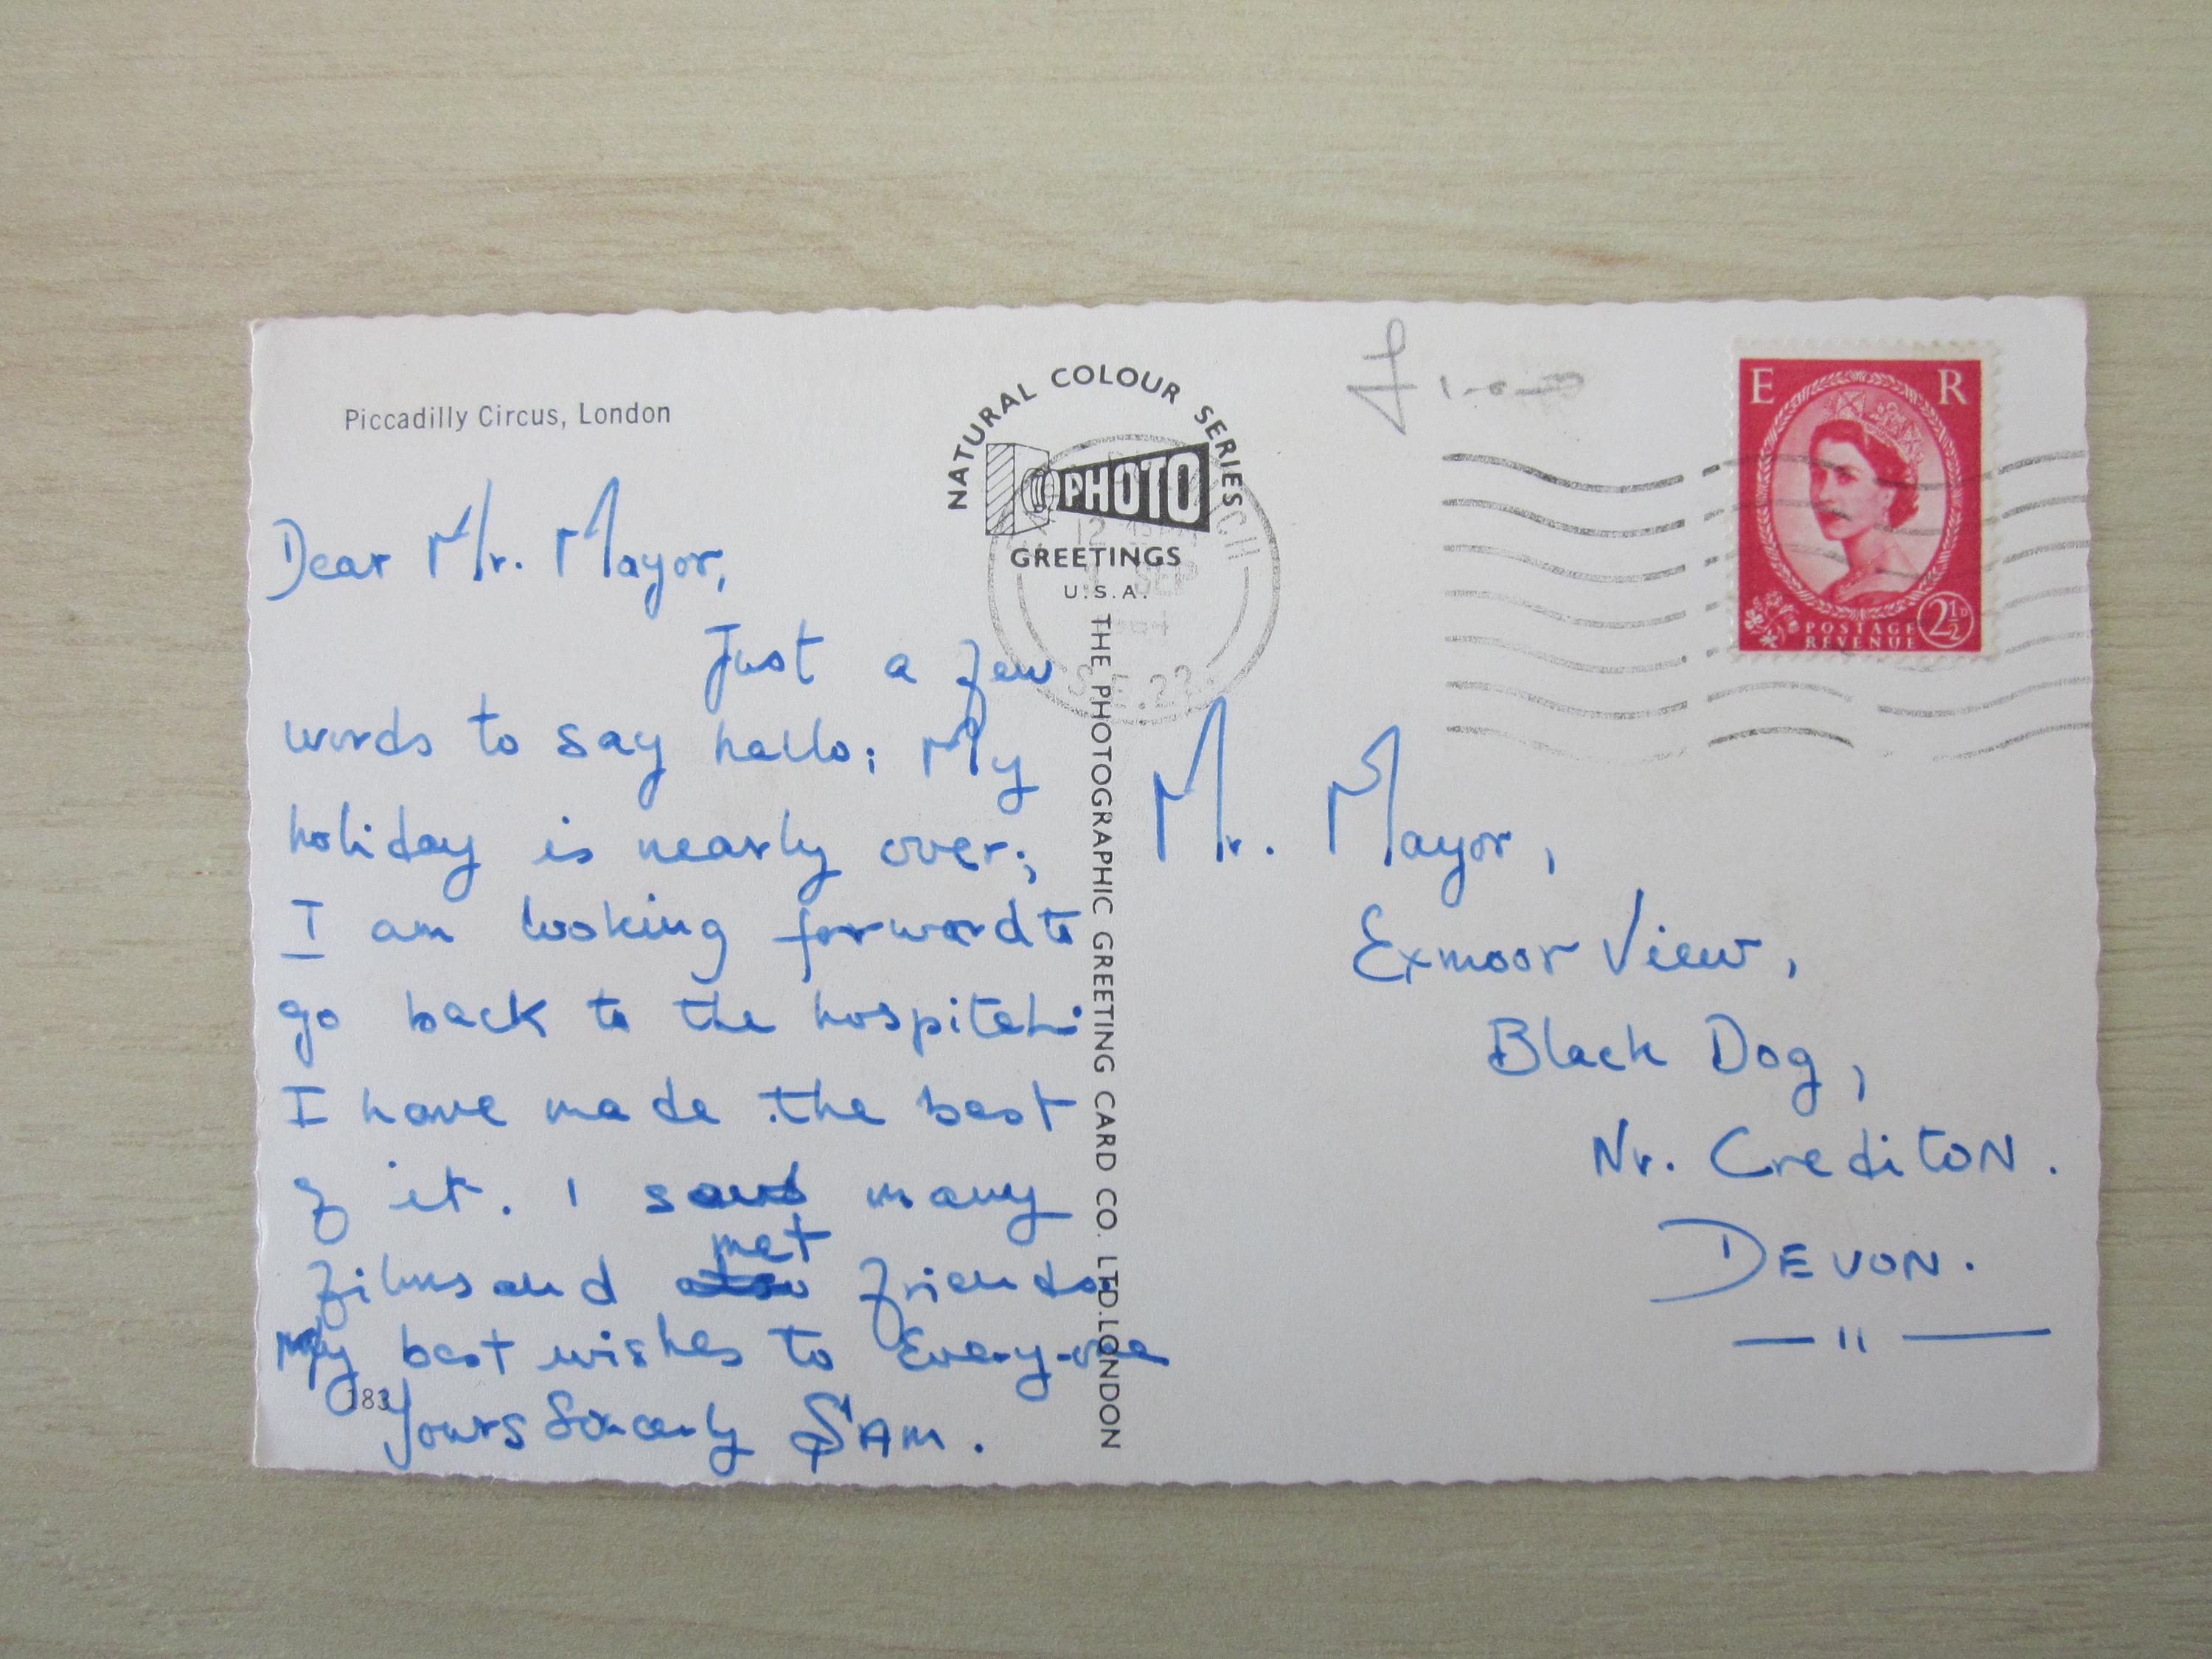 Piccadilly Circus, London
Dear Mr. Mayor,
Just a few
words to say hello; My
holiday is nearly over;
I am looking forward to
go back to the hospital;
I have made the best
of it. I saw many
films and met friends.
My best wishes to Every-one
Yours Sincerely SAM.
183
NATURAL COLOUR SERIES
PHOTO
GREETINGS
U.S.A.
THE PHOTOGRAPHIC GREETING CARD CO. LTD. LONDON
12
SEP
S.E.22
£1-0-0
E R
POSTAGE
REVENUE
2½D
Mr. Mayor,
Exmoor View,
Black Dog,
Nr. CreditoN.
DEVON.
— 11 —